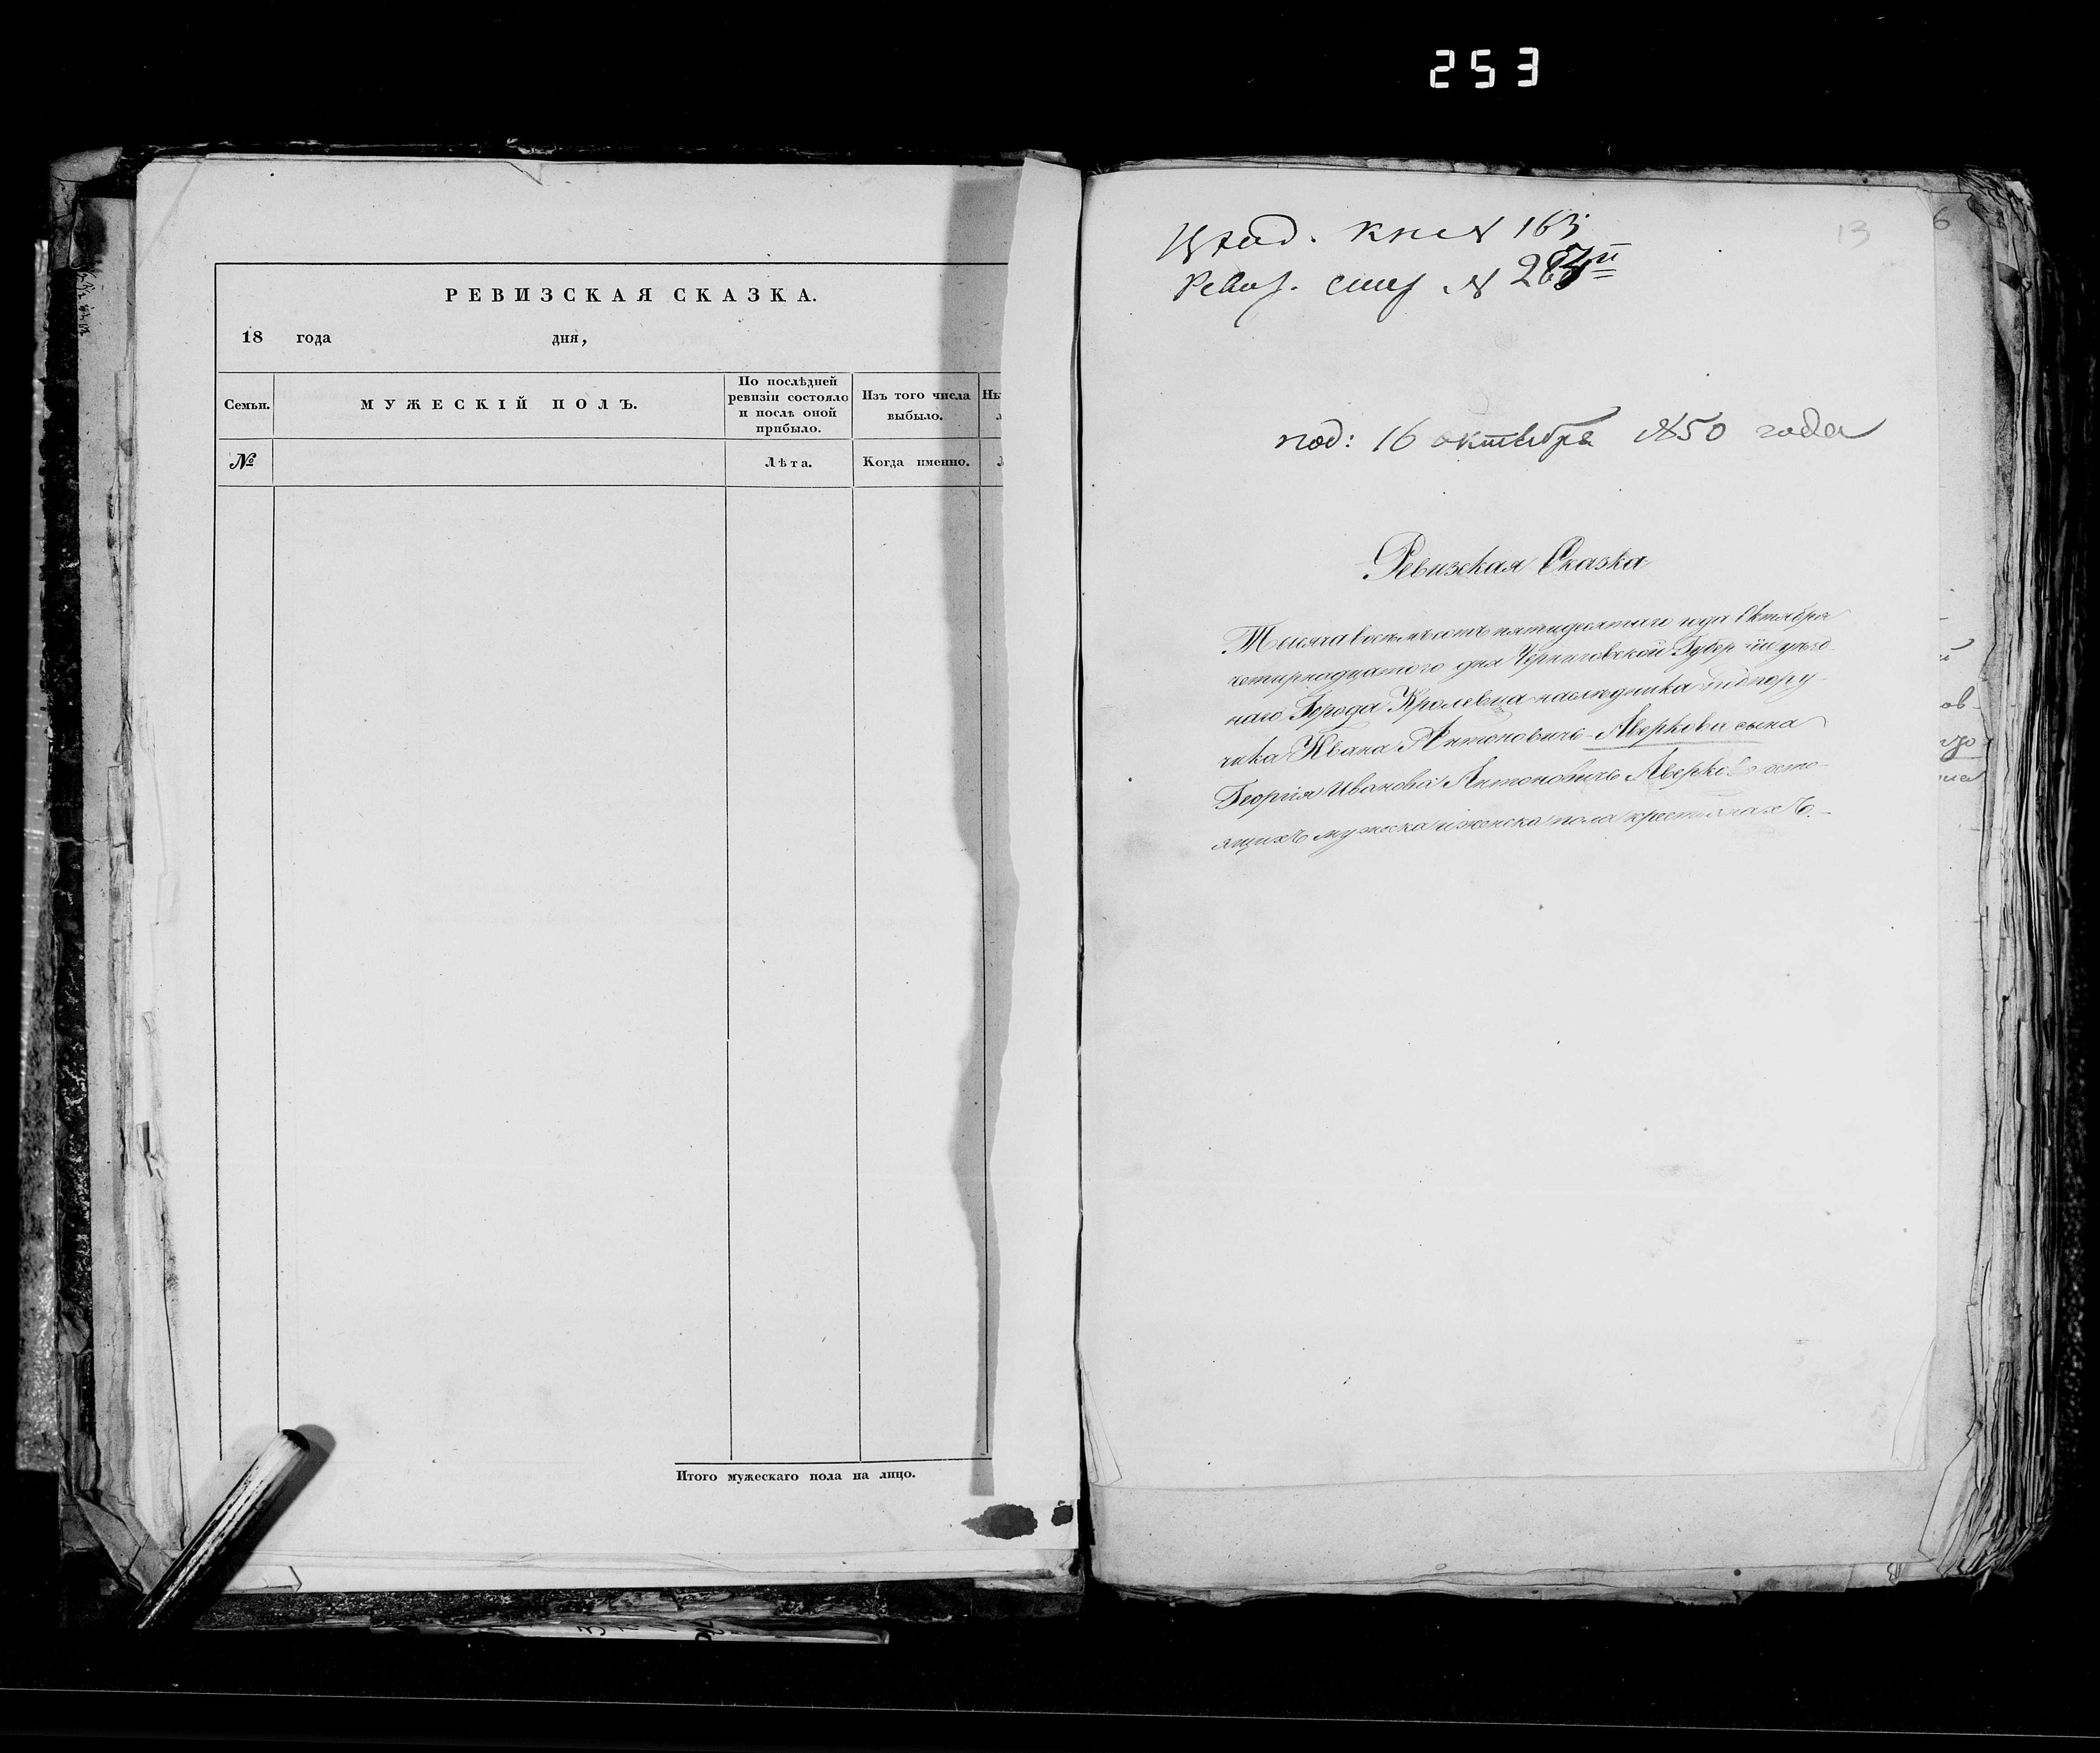 253
РЕВИЗСКАЯ СКАЗКА.
18 года дня,
Семьи.
МУЖЕСКІЙ ПОЛЪ.
По послѣдней
ревизіи состояло
и послѣ оной
прибыло.
Изъ того числа
выбыло.
№
Лѣта.
Когда именно.
Итого мужескаго пола на лицо.
13
6
№ 163
Ревиз. №
под: 16 октября 1850 года
Ревизская Сказка
Тысяча восемьсотъ пятидесятаго года Октября
четырнадцатого дня Черниговской Губерніи уѣзд
наго Города Кролевца наслѣдника подпору-
чика Ивана Антоновича Аверкова сына
Георгія Иванова Антоновича Аверкова состо-
ящихъ мужеска и женска пола крестьянахъ.